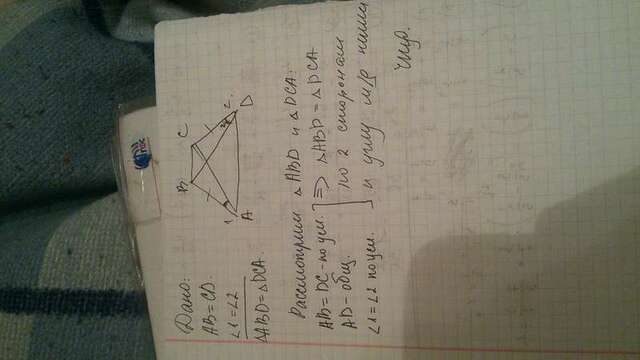 Дано:
AB=CD.
∠1=∠2
△ABD=△DCA.
B C
1 2
A D
Рассмотрим △ABD и △DCA:
AB=DC-по усл. ⇒ △ABD=△DCA
AD-общ. по 2 сторонам
∠1=∠2 по усл. и углу м/д ними
чтд.